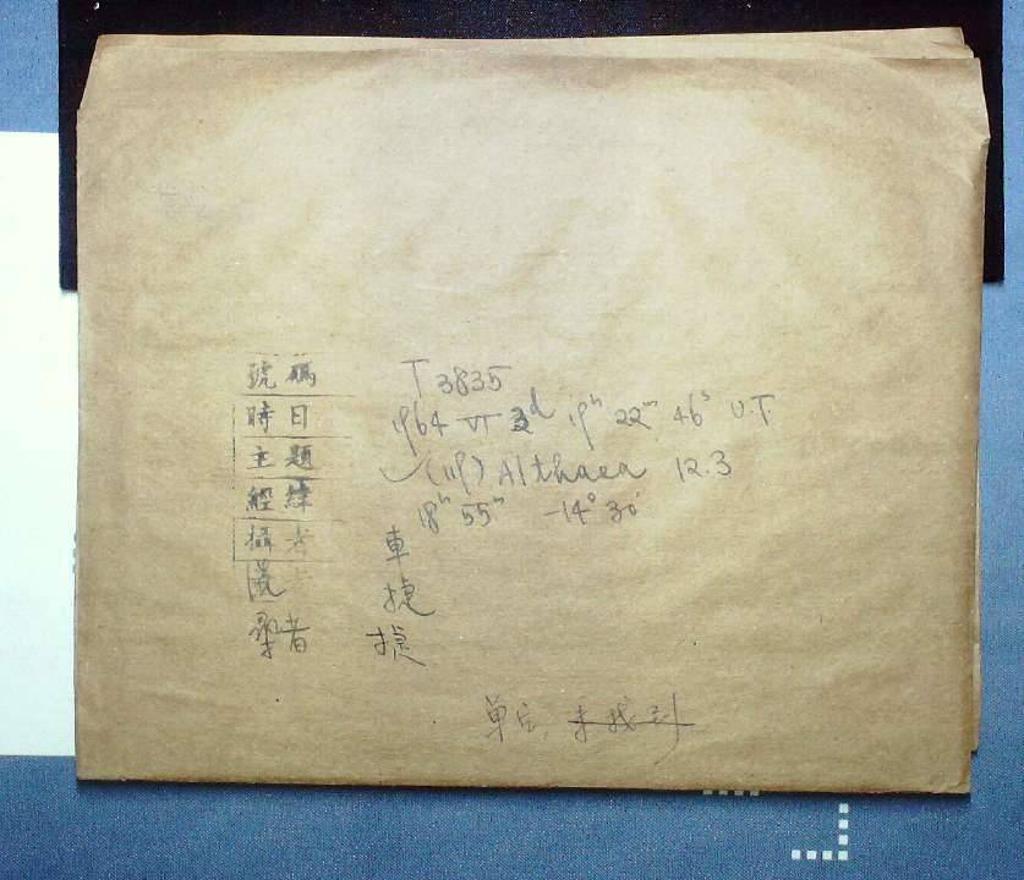 號碼 T 3835
時日 1964 VI 2d 19h 22m 46s U.T.
主題 (119) Althaea 12.3
經緯 18h 55m -14° 30'
攝者 車
捷
者 捷